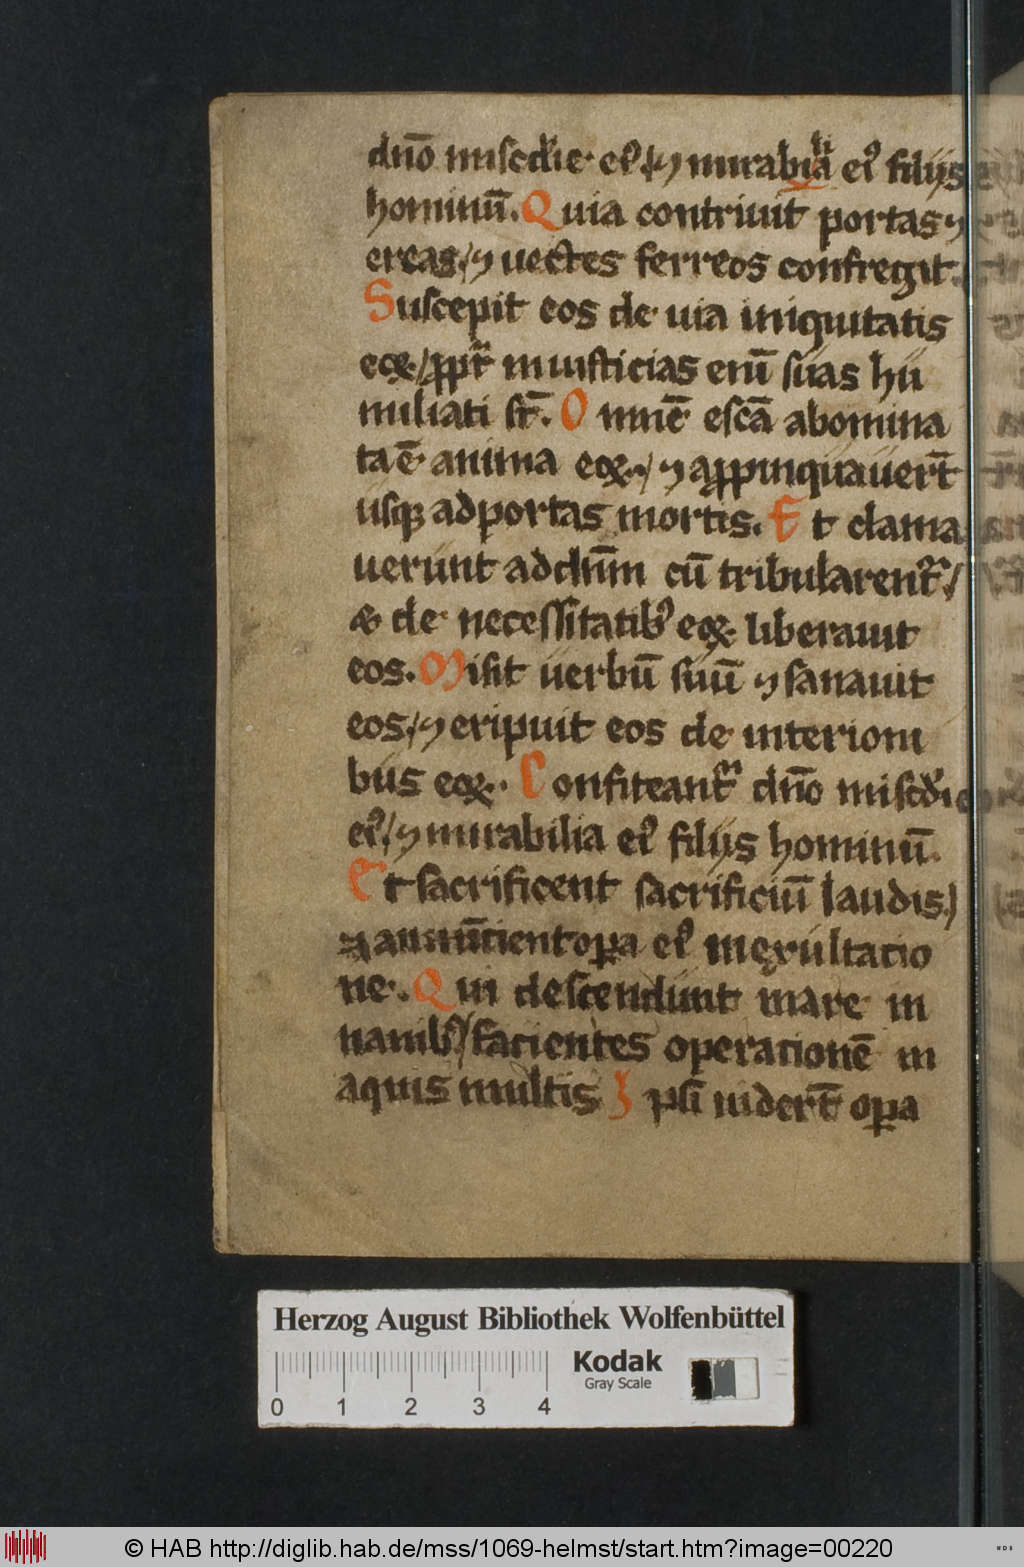 dño misc̄die eiꝰ/ ⁊ mirabilia eiꝰ filijs
hominū. Quia contriuit portas
ereas/ ⁊ uectes ferreos confregit.
Suscepit eos de uia iniquitatis
eoꝝ/ ꝓpt̄ iniusticias enī suas hu
miliati st̄. Omnē escā abomina
ta ē anima eoꝝ/ ⁊ aꝓpinquauert̄
usqꝫ ad portas mortis. Et clama
uerunt ad dn̄m cū tribularent᷑/
& de necessitatibꝰ eoꝝ liberauit
eos. Misit uerbū suū ⁊ sanauit
eos/ ⁊ eripuit eos de interioni
bus eoꝝ. Confiteant᷑ dño misc̄die
eiꝰ/ ⁊ mirabilia eiꝰ filijs hominū.
Et sacrificent sacrificiū laudis/
⁊ annūcient oꝑa eiꝰ in exultatio
ne. Qui descendunt mare in
nauibꝰ/ facientes operationē in
aquis multis Ipsi uidert̄ oꝑa
Herzog August Bibliothek Wolfenbüttel
Kodak
Gray Scale
0 1 2 3 4
© HAB http://diglib.hab.de/mss/1069-helmst/start.htm?image=00220